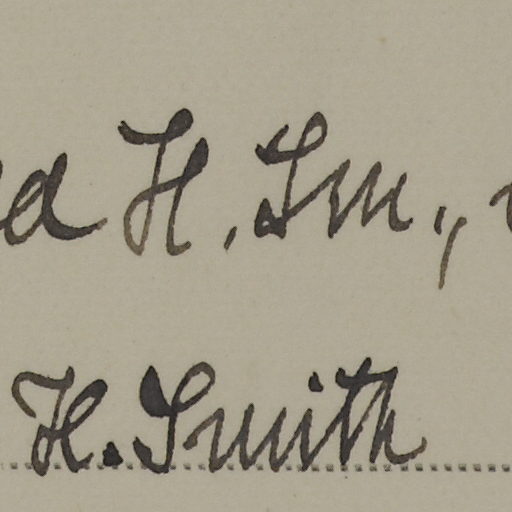 H. Sm.,
H. Smith